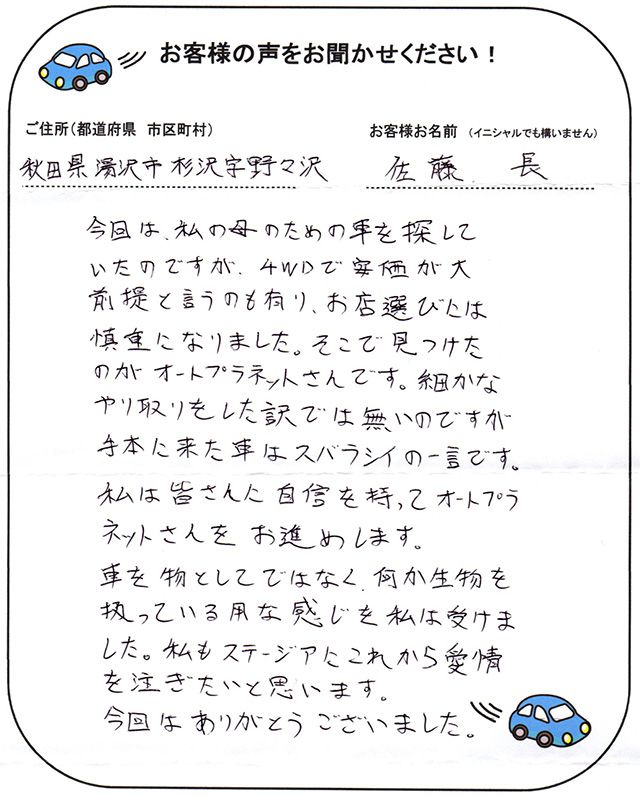 お客様の声をお聞かせください！
ご住所（都道府県 市区町村） お客様お名前 （イニシャルでも構いません）
秋田県湯沢市杉沢字野々沢 佐藤 長
今回は、私の母のための車を探して
いたのですが、4WDで安価が大
前提と言うのも有り、お店選びには
慎重になりました。そこで見つけた
のがオートプラネットさんです。細かな
やり取りをした訳では無いのですが
手本に来た車はスバラシイの一言です。
私は皆さんに自信を持ってオートプラ
ネットさんをお進めします。
車を物としてではなく、何か生物を
扱っている用な感じを私は受けま
した。私もステージアにこれから愛情
を注ぎたいと思います。
今回はありがとうございました。